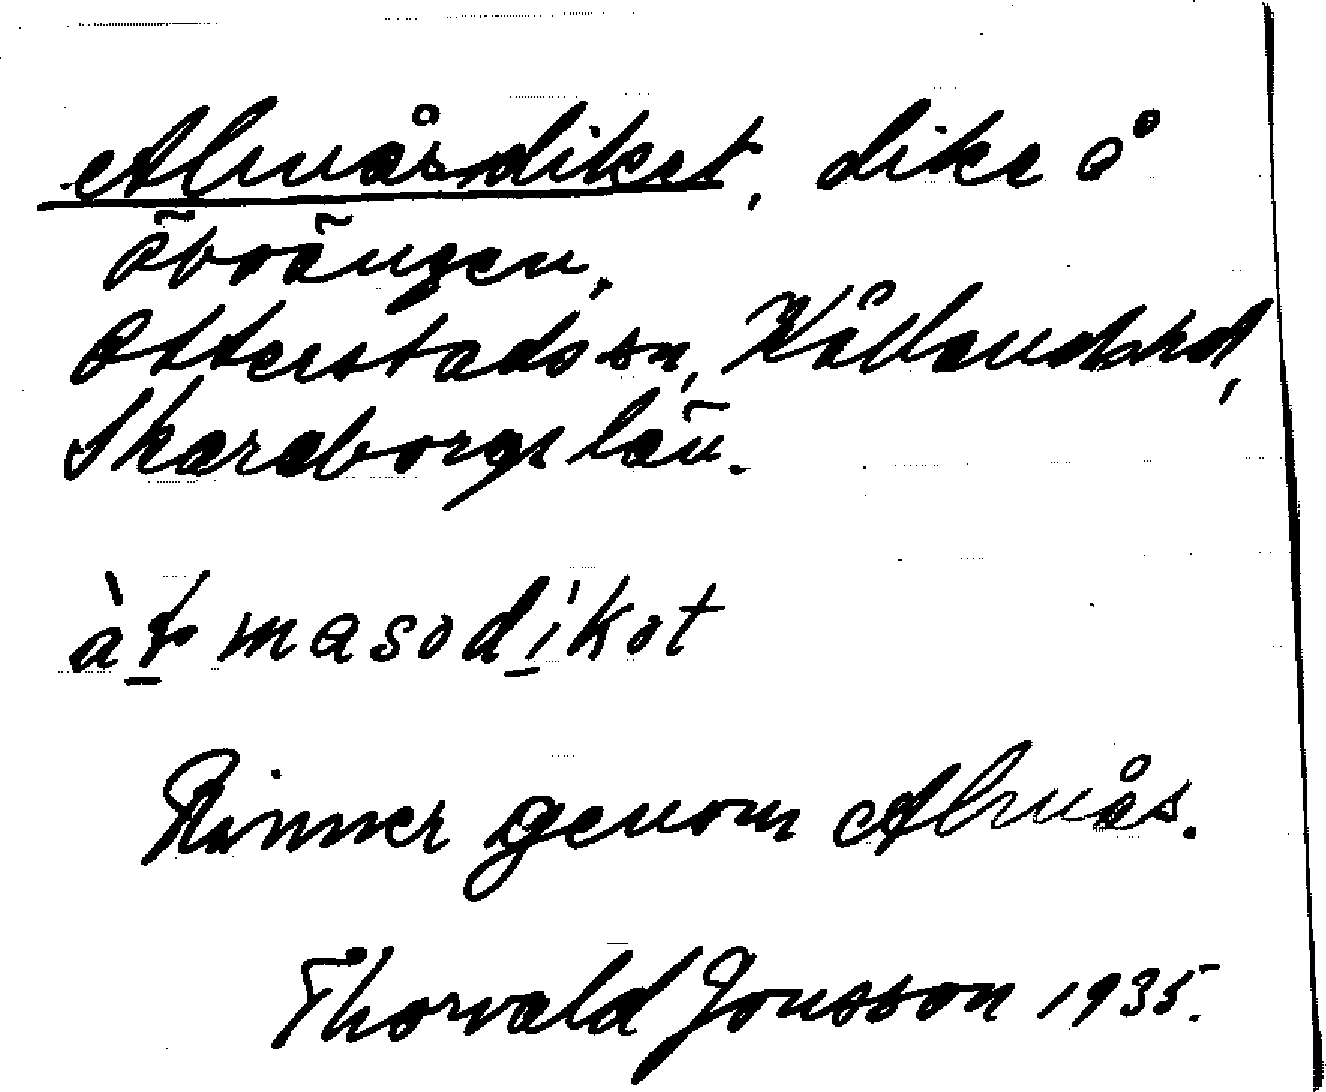 Almåsdiket, dike å
Öboängen,
Otterstads sn, Kållands hd,
Skaraborgs län.
masodikot
Rinner genom Almås.
Thorvald Jonsson 1935.